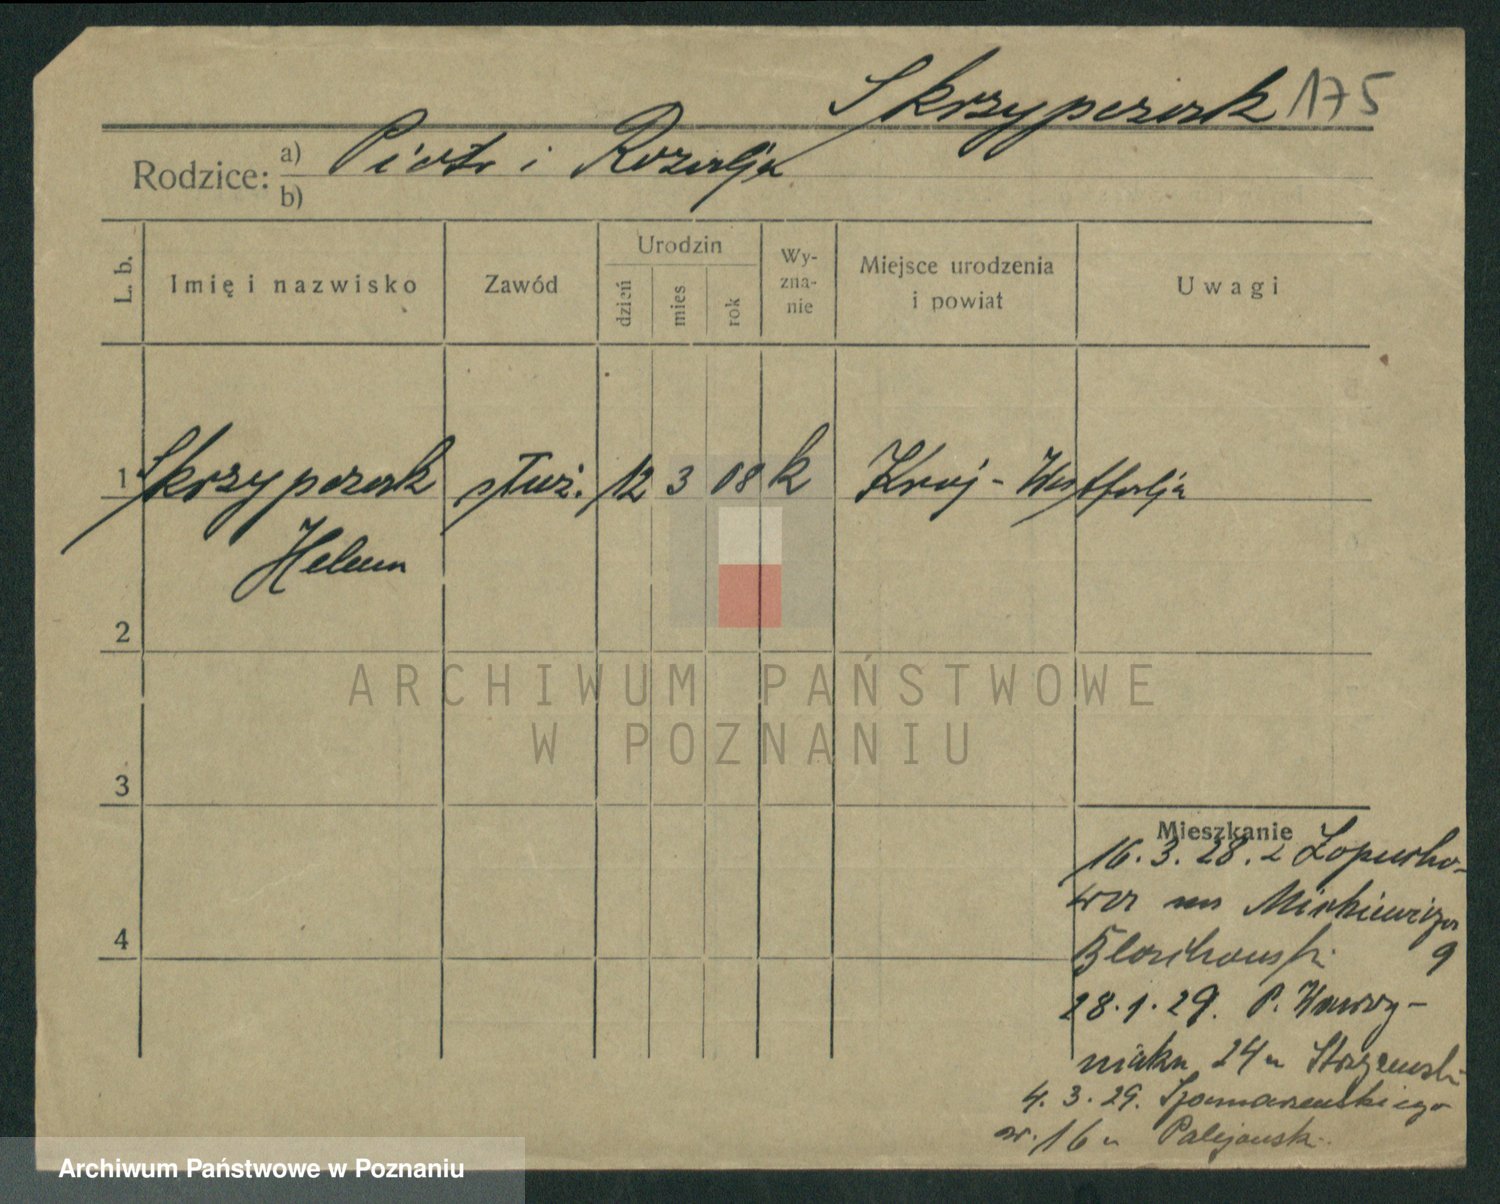 Skrzypczak 175
Rodzice: a) Piotr i Rozalja
b)
L. b.
Imię i nazwisko
Zawód
Urodzin
dzień
mies
rok
Wy-
zna-
nie
Miejsce urodzenia
i powiat
Uwagi
1 Skrzypczak służ. 12 3 08 k Kraj - Westfalja
Helena
2
ARCHIWUM PAŃSTWOWE
W POZNANIU
3
Mieszkanie
16.3.28. z
na Mickiewicza
9
4
28.1.29. P. Wawrzy-
niaka 24 u
4.3.29. Szamarzewskiego
nr. 16 u
Archiwum Państwowe w Poznaniu